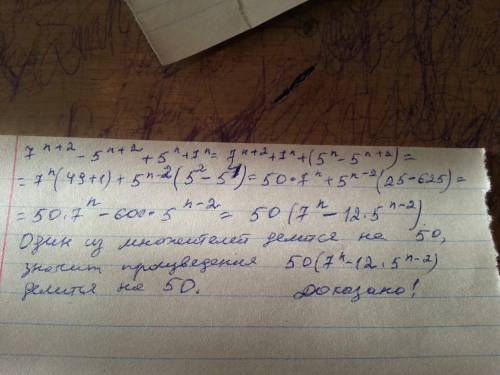 7^{n+2} - 5^{n+2} + 5^n + 7^n = 7^{n+2} + 7^n + (5^n - 5^{n+2}) =
= 7^n (49+1) + 5^{n-2} (5^2 - 5^4) = 50 · 7^n + 5^{n-2} (25 - 625) =
= 50 · 7^n - 600 · 5^{n-2} = 50 (7^n - 12 · 5^{n-2}).
Один из множителей делится на 50,
значит произведения 50 (7^n - 12 · 5^{n-2})
делится на 50. Доказано!